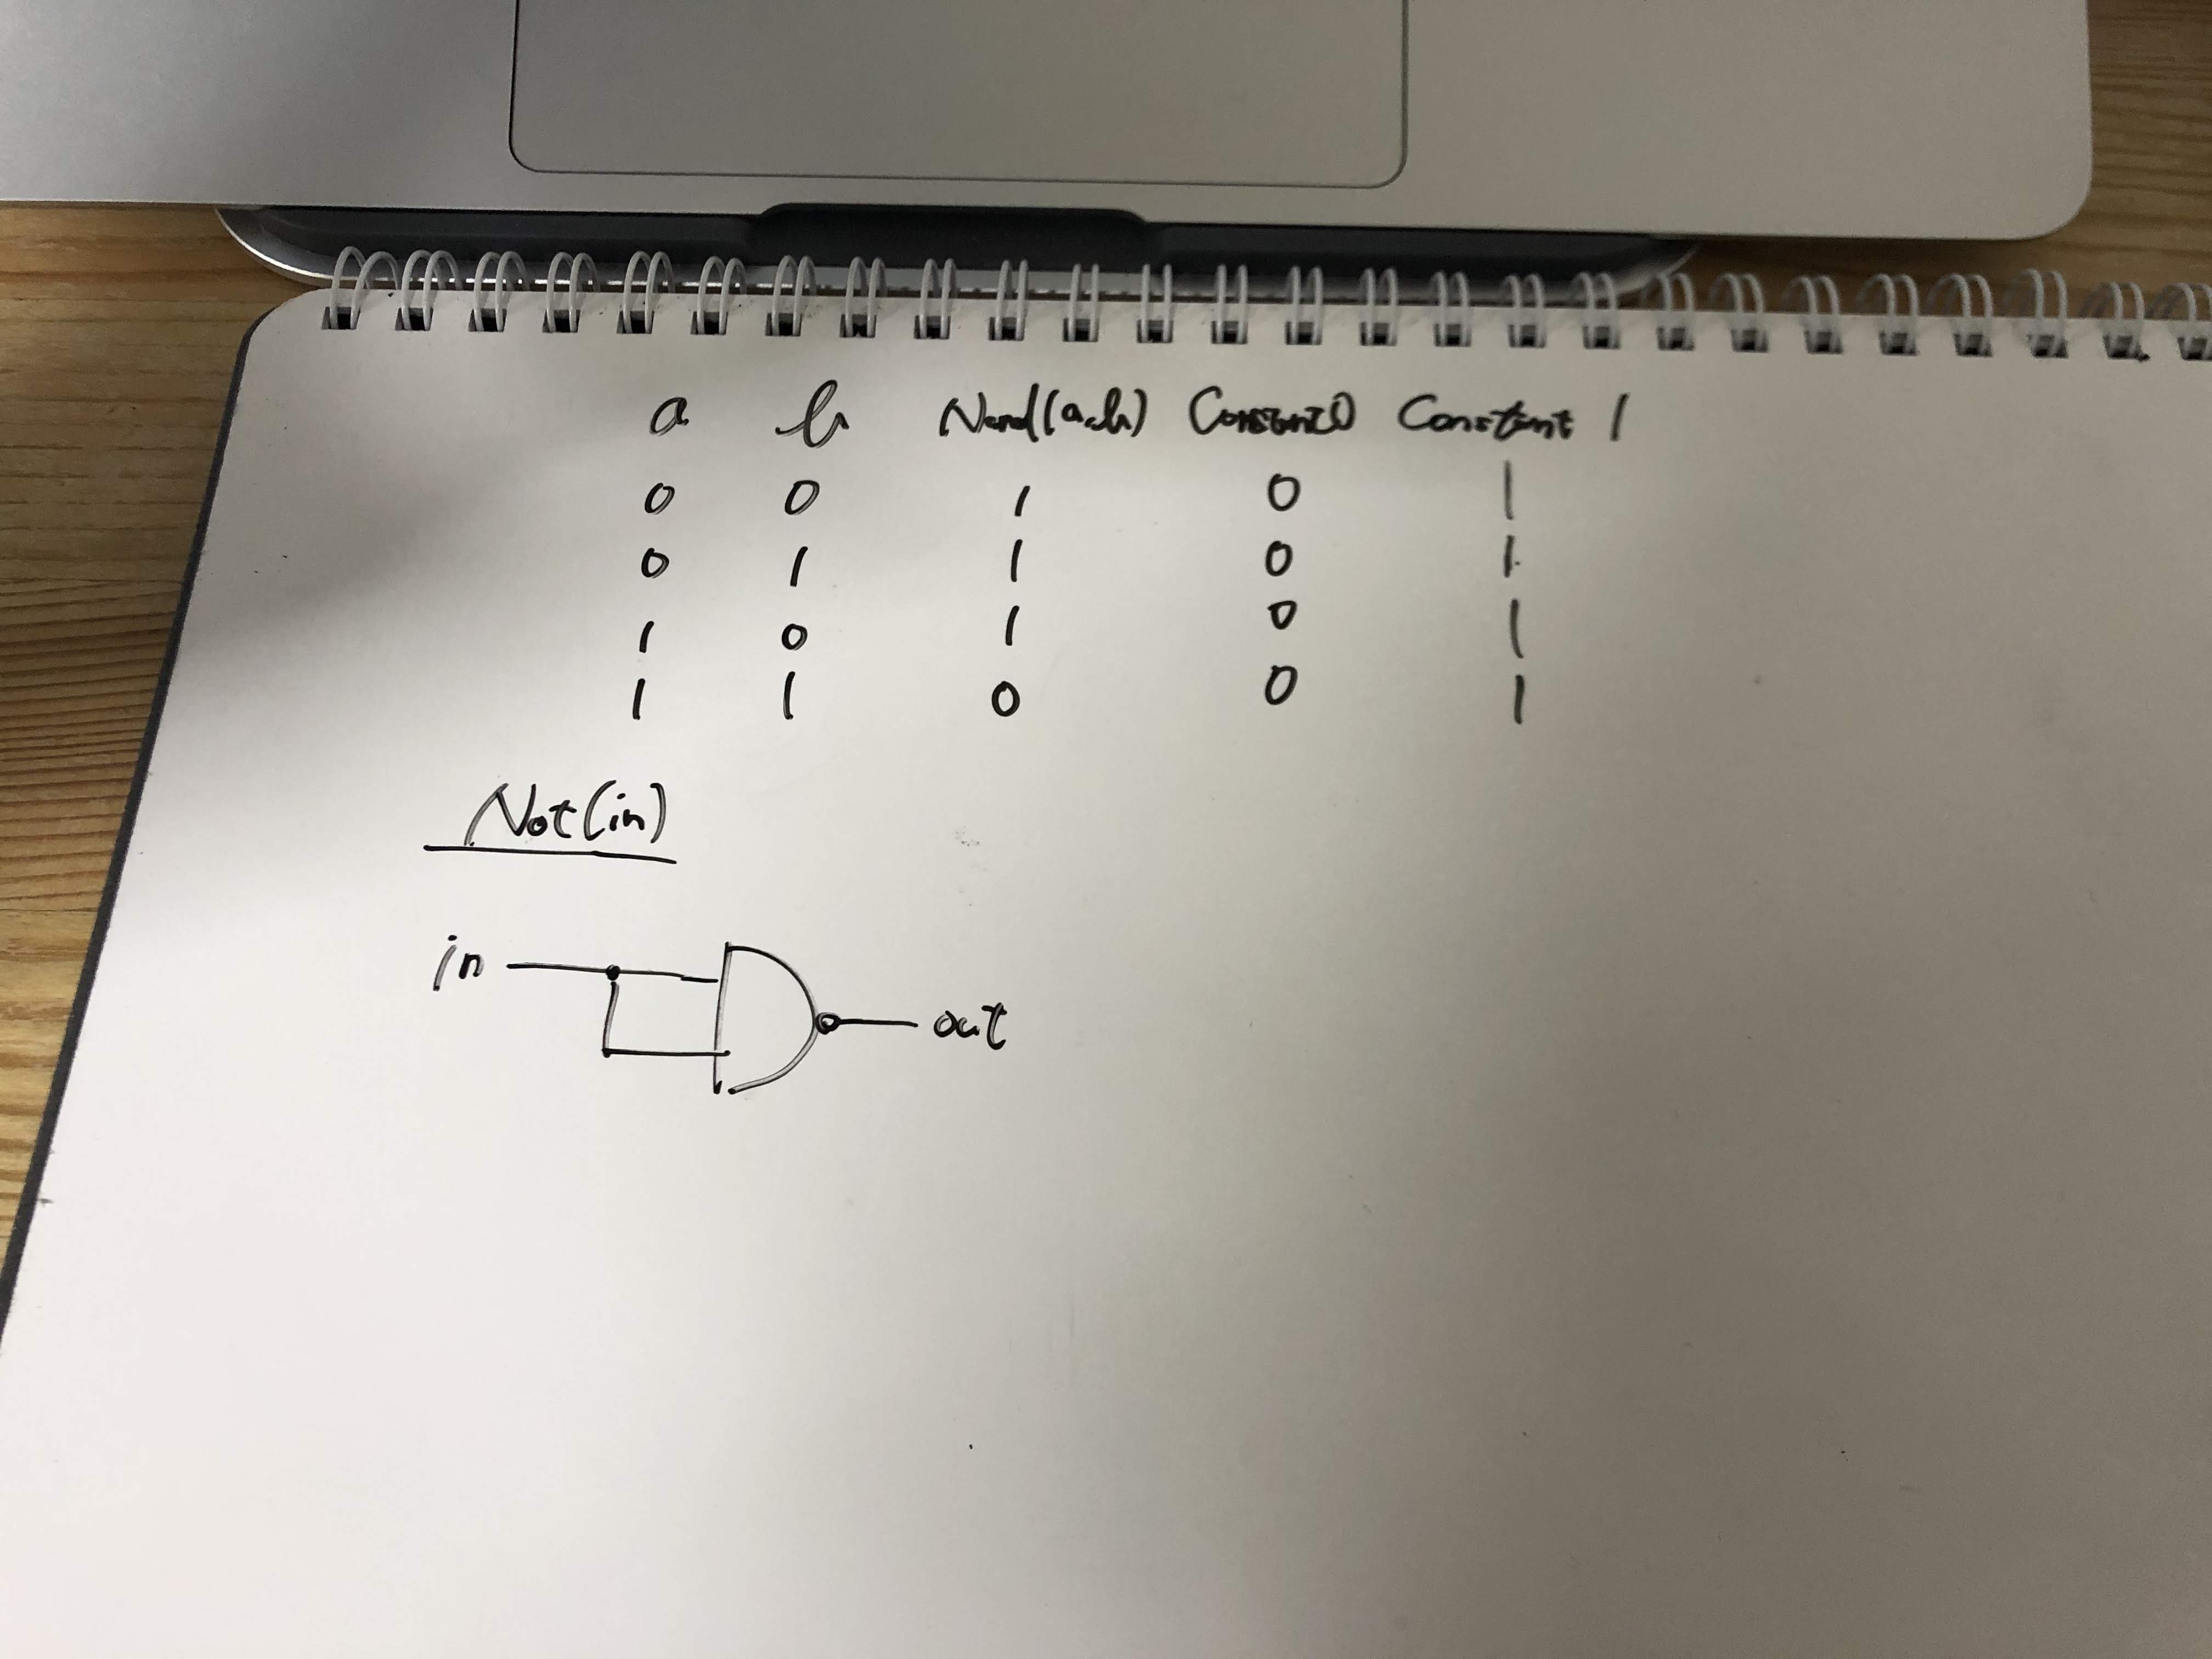 a b Nand(a,b) Constant0 Constant 1
0 0 1 0 1
0 1 1 0 1
1 0 1 0 1
1 1 0 0 1
Not(in)
in out